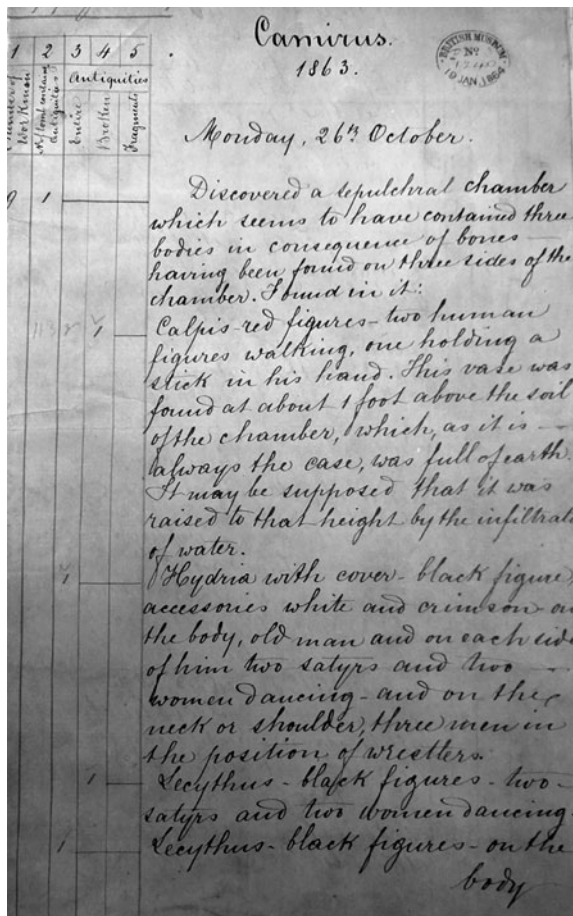 Camirus.
1863.
BRITISH MUSEUM
No
19 JAN. 1864
1 2 3 4 5
Number of Workmen
No of tombs containing Antiquities
Antiquities
Entire
Broken
Fragments
Monday, 26th October.
9 1
Discovered a sepulchral chamber
which seems to have contained three
bodies in consequence of bones
having been found on three sides of the
chamber. Found in it:
1 Calpis-red figures-two human
figures walking, one holding a
stick in his hand. This vase was
found at about 1 foot above the soil
of the chamber, which, as it is
always the case, was full of earth.
It may be supposed that it was
raised to that height by the infiltrat
of water.
1 Hydria with cover-black figure,
accessories white and crimson-on
the body, old man and on each side
of him two satyrs and two
women dancing-and on the
neck or shoulder, three men in
the position of wrestlers.
1 Lecythus-black figures-two
satyrs and two women dancing.
1 Lecythus-black figures-on the
body